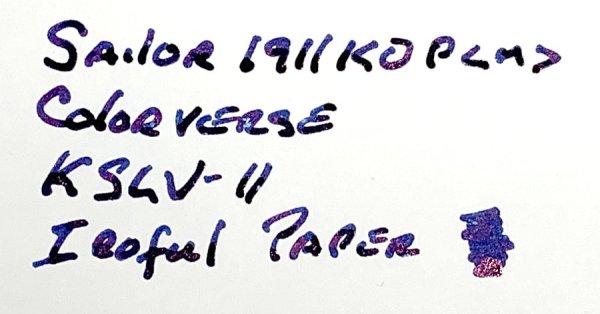 Sailor 1911 KOP <M>
Colorverse
KSLV-II
Iroful Paper